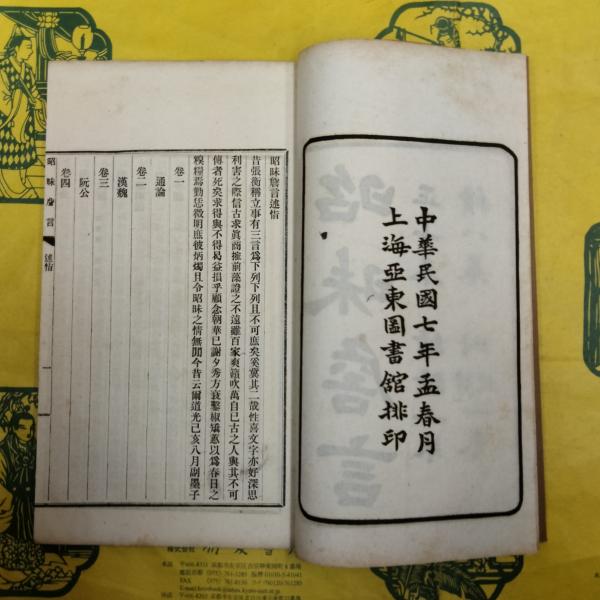 中華民國七年孟春月
上海亞東圖書館排印
昭昧詹言述恉
昔張衡稱立事有三言爲下列下列且不可庶矣奚冀其二哉性喜文字亦好深思
利害之際信古求眞商搉前藻證之不遠雖百家爽籟吹萬自已古之人與其不可
傳者死矣求得與不得曷益損乎顧念朝華已謝夕秀方衰鑿椒矯蕙以爲春日之
糗糧焉勤恁微明庶彼炳燭且令昭昧之情無閒今昔云爾道光己亥八月副墨子
卷一
通論
卷二
漢魏
卷三
阮公
卷四
昭昧詹言 述恉 一
株式会社
FAX